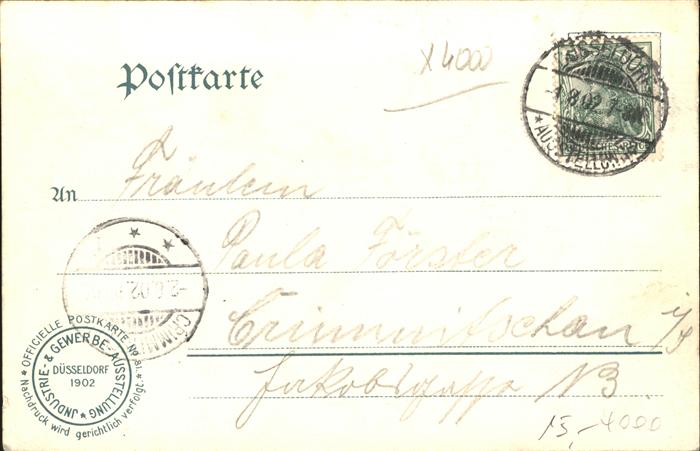 x 4000
Postkarte
DÜSSELDORF
AUSSTELLUNG
An Fräulein
Paula Förster
Crimmitschau i/S
Jakobsgasse
OFFICIELLE POSTKARTE No 81.
JNDUSTRIE- & GEWERBE-AUSSTELLUNG
DÜSSELDORF
1902
Nachdruck wird gerichtlich verfolgt.
15,- 4000